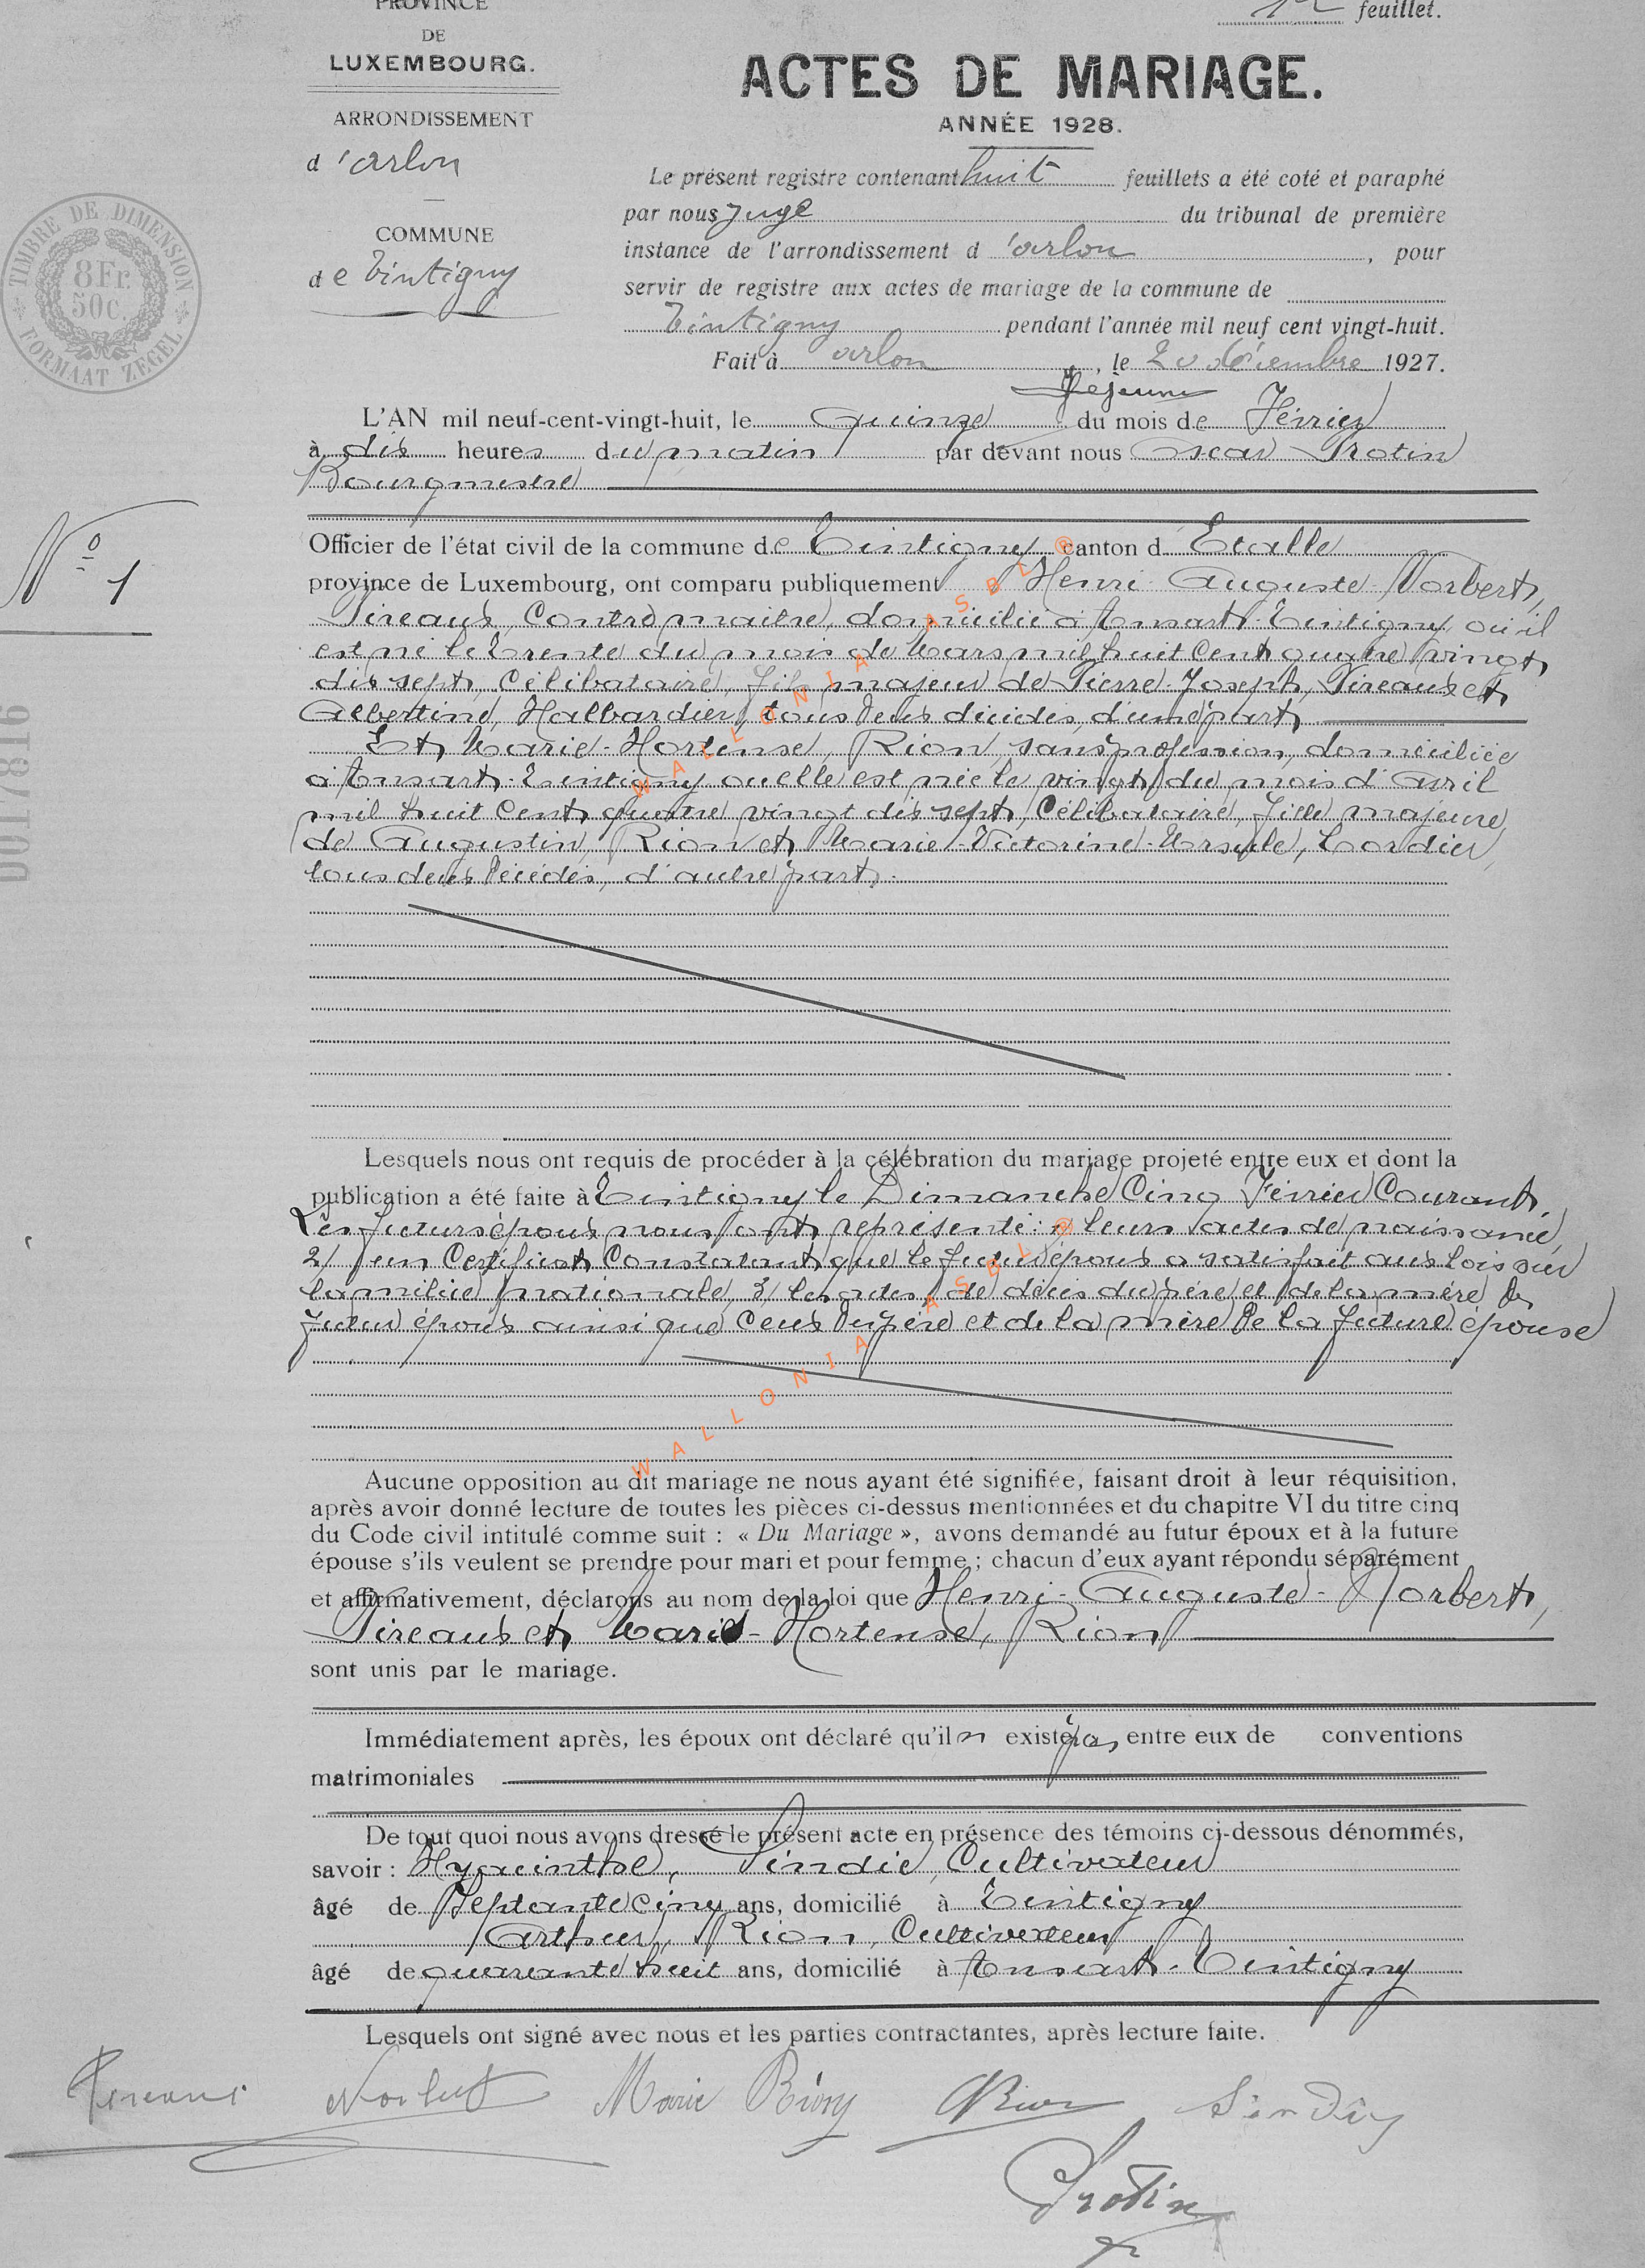 PROVINCE
DE
LUXEMBOURG.
ARRONDISSEMENT
d'arlon
COMMUNE
de Tintigny
TIMBRE DE DIMENSION
8Fr.
50c.
FORMAAT ZEGEL
1er feuillet.
ACTES DE MARIAGE.
ANNÉE 1928.
Le présent registre contenant huit feuillets a été coté et paraphé
par nous Juge du tribunal de première
instance de l'arrondissement d'arlon, pour
servir de registre aux actes de mariage de la commune de
Tintigny pendant l'année mil neuf cent vingt-huit.
Fait à arlon, le 20 décembre 1927.
Lejeune
L'AN mil neuf-cent-vingt-huit, le quinze du mois de Février
à dix heures du matin par devant nous Oscar Protin
Bourgmestre
N° 1
Officier de l'état civil de la commune de Tintigny canton d Etalle
province de Luxembourg, ont comparu publiquement Henri-Auguste-Norbert,
Pireaux, Contre maitre, domicilié à Ansart-Tintigny où il
est né le trente du mois de Mars mil huit Cent quatre vingt
dix sept, Célibataire, fils majeur de Pierre-Joseph, Pireaux et
Albertine, Halbardier, tous deux décédés, d'une part
Et Marie-Hortense, Rion, sans profession, domiciliée
à Ansart-Tintigny où elle est née le vingt du mois d'Avril
mil huit Cent quatre vingt dix sept, Célibataire, fille majeure
de Augustin, Rion et Marie-Victorine-Ursule, Cordier,
tous deux décédés, d'autre part.
D017816
Lesquels nous ont requis de procéder à la célébration du mariage projeté entre eux et dont la
publication a été faite à Tintigny le Dimanche Cinq Février Courant.
Les futurs époux nous ont représenté: 1/ leurs actes de naissance,
2/ un Certificat Constatant que le futur époux a satisfait aux lois sur
la milice nationale, 3/ les actes de décès du père et de la mère du
futur époux ainsi que Ceux du père et de la mère de la future épouse
Aucune opposition au dit mariage ne nous ayant été signifiée, faisant droit à leur réquisition,
après avoir donné lecture de toutes les pièces ci-dessus mentionnées et du chapitre VI du titre cinq
du Code civil intitulé comme suit : « Du Mariage », avons demandé au futur époux et à la future
épouse s'ils veulent se prendre pour mari et pour femme ; chacun d'eux ayant répondu séparément
et affirmativement, déclarons au nom de la loi que Henri-Auguste-Norbert,
Pireaux et Marie-Hortense, Rion
sont unis par le mariage.
Immédiatement après, les époux ont déclaré qu'il n existe pas entre eux de conventions
matrimoniales
De tout quoi nous avons dressé le présent acte en présence des témoins ci-dessous dénommés,
savoir : Hyacinthe, Sindic, Cultivateur
âgé de Septante Cinq ans, domicilié à Tintigny
Arthur, Rion, Cultivateur
âgé de quarante huit ans, domicilié à Ansart-Tintigny
Lesquels ont signé avec nous et les parties contractantes, après lecture faite.
Pireaux Norbert Marie Rion A Rion Sindic
Protin
WALLONIA ASBL ®
WALLONIA ASBL ®